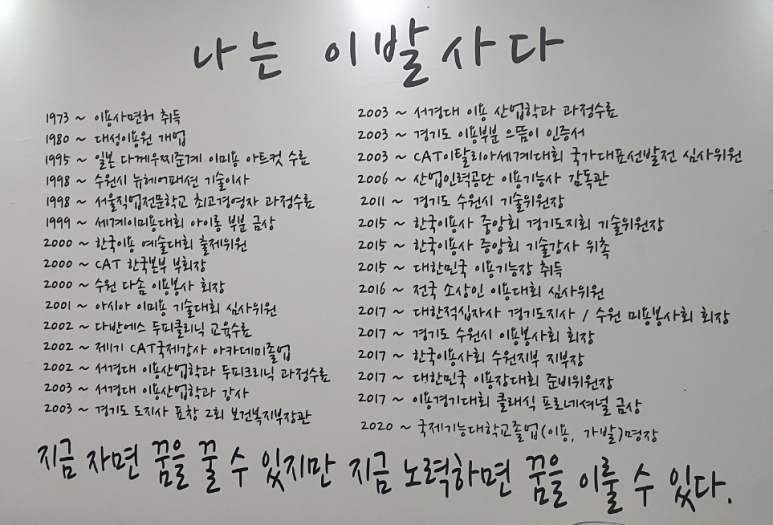 나는 이발사다
1973 ~ 이용사면허 취득
1980 ~ 대성이용원 개업
1995 ~ 일본 다케우찌준계 이미용 아트컷 수료
1998 ~ 수원시 뉴헤어패션 기술이사
1998 ~ 서울직업전문학교 최고경영자 과정수료
1999 ~ 세계이미용대회 아이롱 부분 금상
2000 ~ 한국이용 예술대회 출제위원
2000 ~ CAT 한국본부 부회장
2000 ~ 수원 다솜 이용봉사 회장
2001 ~ 아시아 이미용 기술대회 심사위원
2002 ~ 다반에스 두피클리닉 교육수료
2002 ~ 제11기 CAT국제강사 아카데미졸업
2002 ~ 서경대 이용산업학과 두피크리닉 과정수료
2003 ~ 서경대 이용산업학과 강사
2003 ~ 경기도 도지사 표창 2회 보건복지부장관
2003 ~ 서경대 이용 산업학과 과정수료
2003 ~ 경기도 이용부분 으뜸이 인증서
2003 ~ CAT이탈리아세계대회 국가대표선발전 심사위원
2006 ~ 산업인력공단 이용기능사 감독관
2011 ~ 경기도 수원시 기술위원장
2015 ~ 한국이용사 중앙회 경기도지회 기술위원장
2015 ~ 한국이용사 중앙회 기술강사 위촉
2015 ~ 대한민국 이용기능장 취득
2016 ~ 전국 소상인 이용대회 심사위원
2017 ~ 대한적십자사 경기도지사 / 수원 미용봉사회 회장
2017 ~ 경기도 수원시 이용봉사회 회장
2017 ~ 한국이용사회 수원지부 지부장
2017 ~ 대한민국 이용장대회 준비위원장
2017 ~ 이용경기대회 클래식 프로네셔널 금상
2020 ~ 국제기능대학교졸업(이용, 가발)명장
지금 자면 꿈을 꿀 수 있지만 지금 노력하면 꿈을 이룰 수 있다.